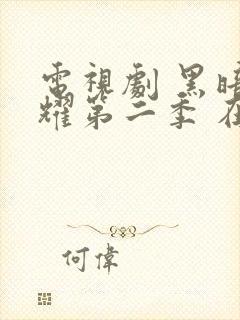 電視劇 黑暗
耀第二季 在
何偉